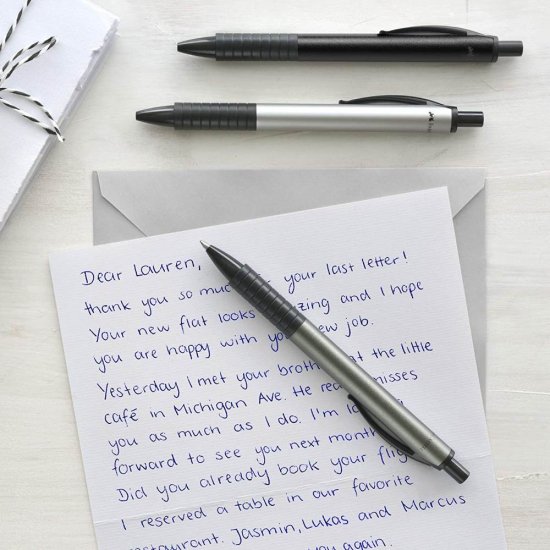 Dear Lauren,
thank you so much your last letter!
Your new flat looks and I hope
you are happy with your new job.
Yesterday I met your brother at the little
café in Michigan Ave. He misses
you as much as I do. I'm
forward to see you next month
Did you alreaddy book your
I reserved a table in our favorite
restaurant. Jasmin, Lukas and Marcus
you again.